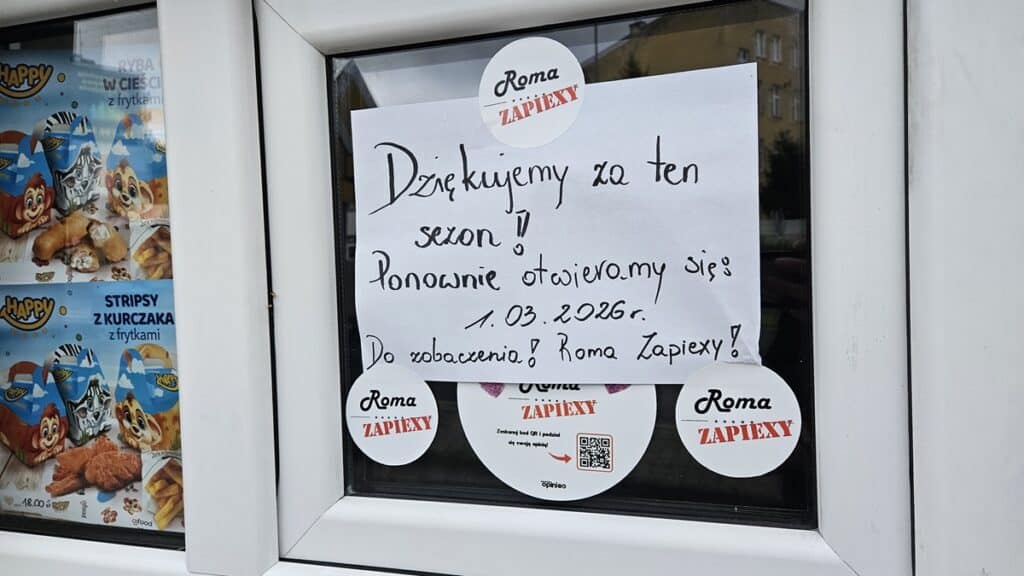 HAPPY
RYBA
W CIEŚCI
z frytkami
HAPPY
STRIPSY
Z KURCZAKA
z frytkami
18.00 zł
food
Roma
ZAPIEXY
Dziękujemy za ten
sezon!
Ponownie otwieramy się:
1.03.2026r.
Do zobaczenia! Roma Zapiexy!
Roma
ZAPIEXY
Roma
ZAPIEXY
Zeskanuj kod QR i podziel
się swoją opinią!
opineo
Roma
ZAPIEXY